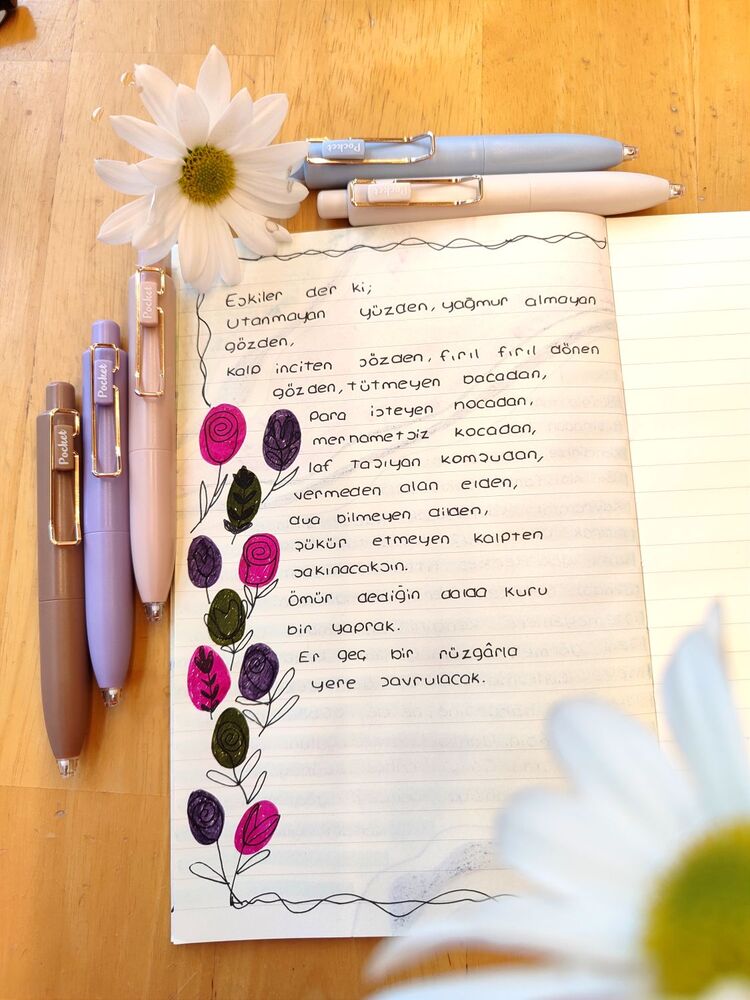 Pocket
Pocket
Pocket
Pocket
Pocket
Eskiler der ki;
Utanmayan yüzden, yağmur almayan
gözden,
Kalp inciten sözden, fırıl fırıl dönen
gözden, tütmeyen bacadan,
Para isteyen hocadan,
merhametsiz kocadan,
laf taşıyan komşudan,
vermeden alan elden,
dua bilmeyen dilden,
şükür etmeyen kalpten
sakınacaksın.
Ömür dediğin dalda kuru
bir yaprak.
Er geç bir rüzgârla
yere savrulacak.